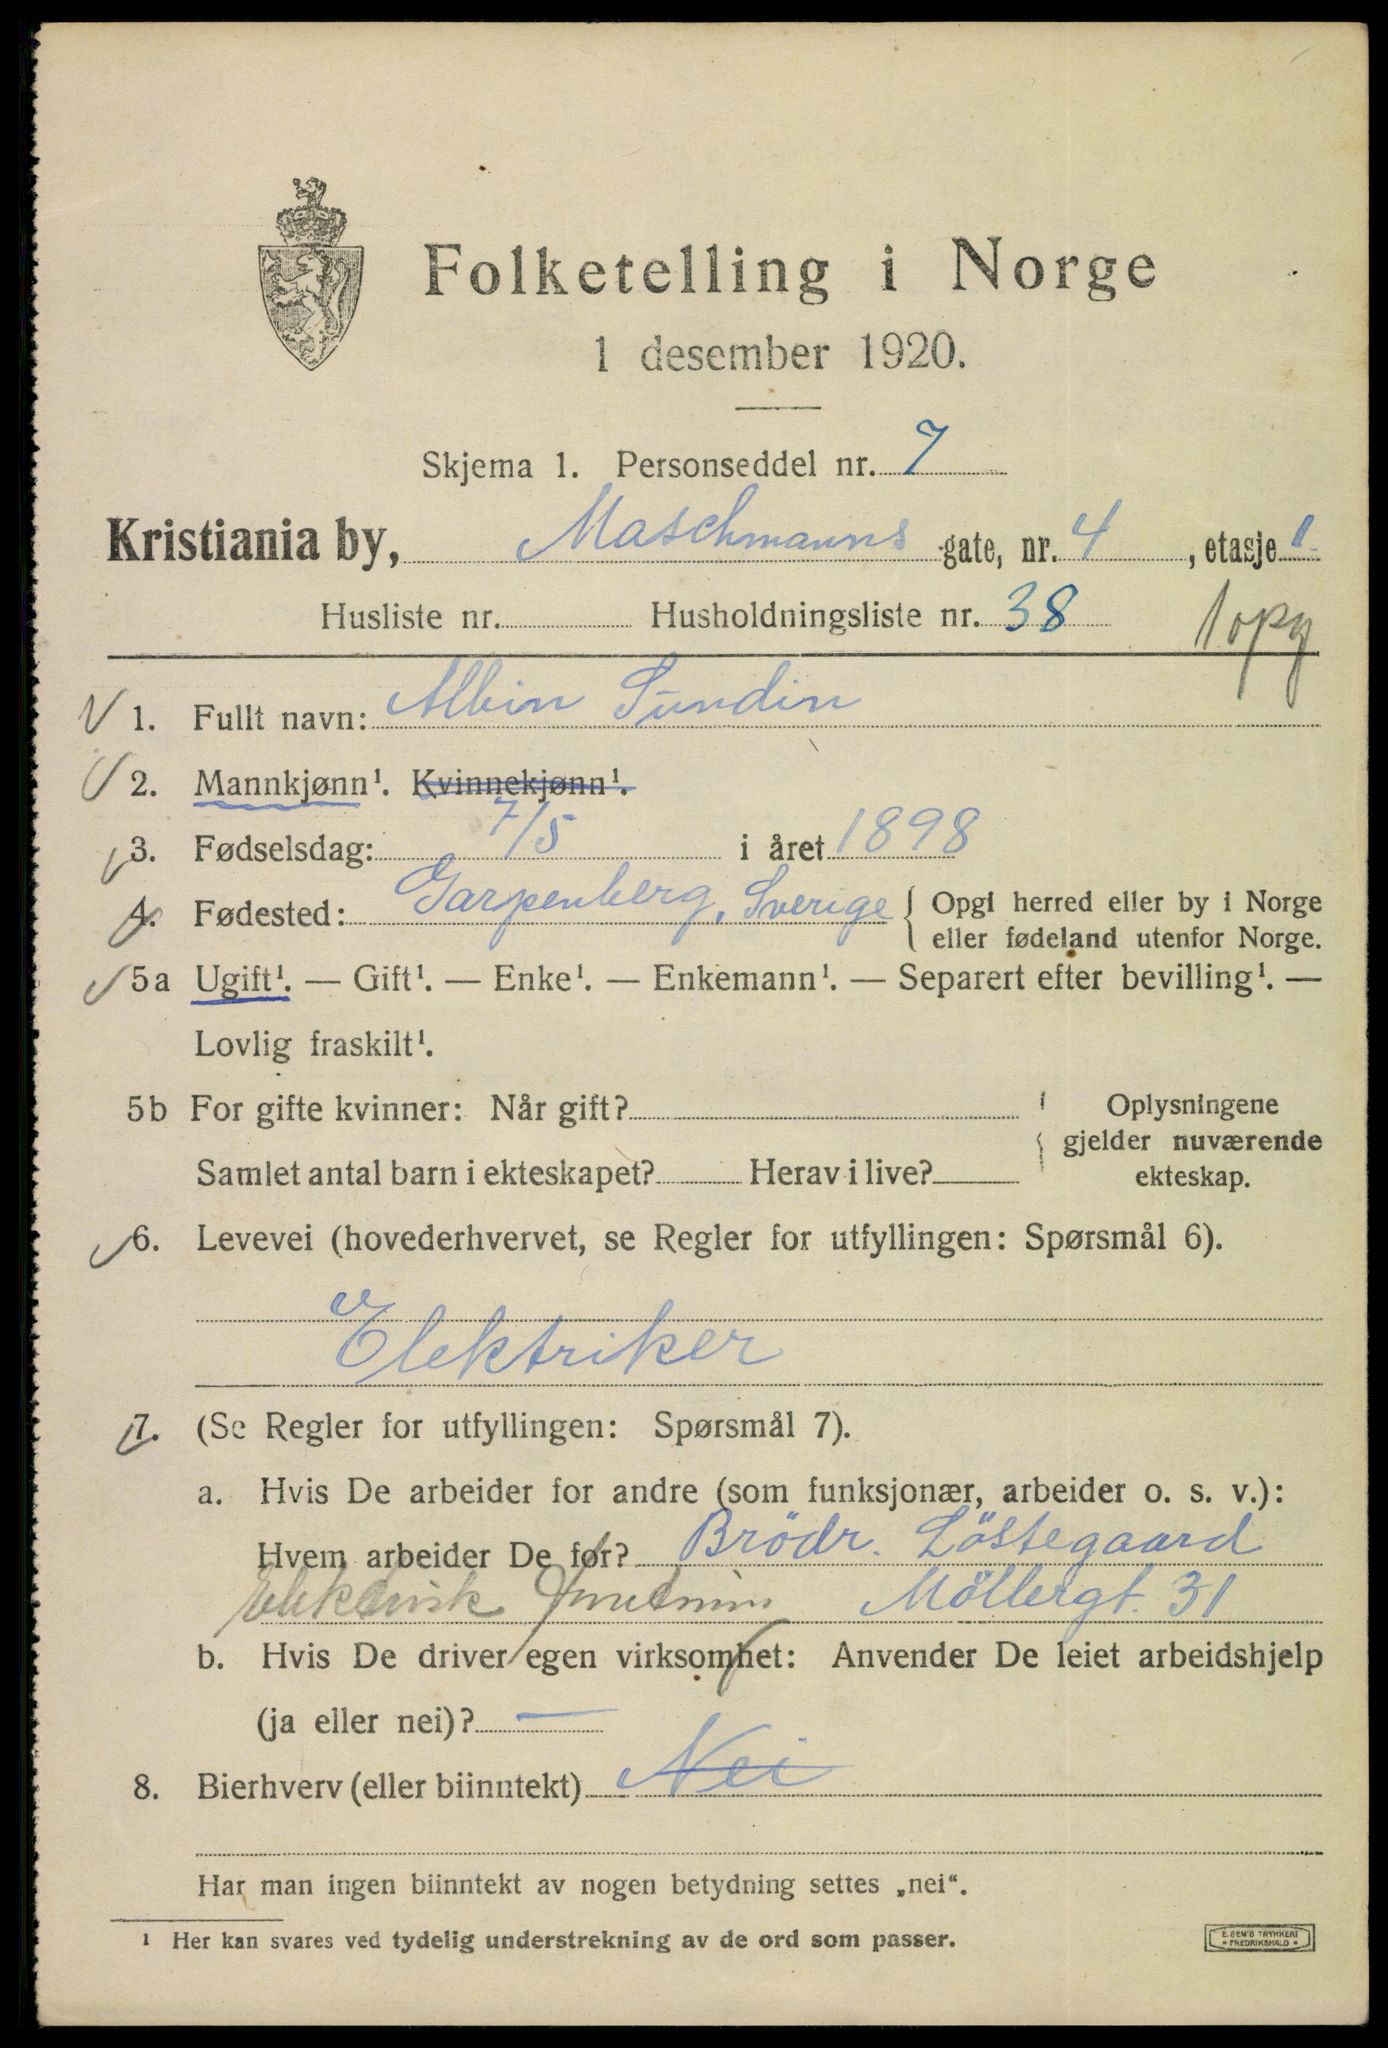 Folketelling i Norge
1 desember 1920.
Skjema 1. Personseddel nr. 7
Kristiania by, Maschmanns gate, nr. 4, etasje 1
Husliste nr. Husholdningsliste nr. 38
1 opg
1. Fullt navn: Albin Sundin
2. Mannkjønn¹. Kvinnekjønn¹.
3. Fødselsdag: 7/5 i året 1898
4. Fødested: Garpenberg, Sverige { Opgi herred eller by i Norge
eller fødeland utenfor Norge.
5a Ugift¹. — Gift¹. — Enke¹. — Enkemann¹. — Separert efter bevilling¹. —
Lovlig fraskilt¹.
5b For gifte kvinner: Når gift?
Samlet antal barn i ekteskapet? Herav i live?
Oplysningene
gjelder nuværende
ekteskap.
6. Levevei (hovederhvervet, se Regler for utfyllingen: Spørsmål 6).
Elektriker
7. (Se Regler for utfyllingen: Spørsmål 7).
a. Hvis De arbeider for andre (som funksjonær, arbeider o. s. v.):
Hvem arbeider De for? Brödr. Löstegaard
Elektrisk Möllergt. 31
b. Hvis De driver egen virksomhet: Anvender De leiet arbeidshjelp
(ja eller nei)? —
8. Bierhverv (eller biinntekt) Nei
Har man ingen biinntekt av nogen betydning settes „nei“.
¹ Her kan svares ved tydelig understrekning av de ord som passer.
E. SEM'S TRYKKERI
• FREDRIKSHALD •